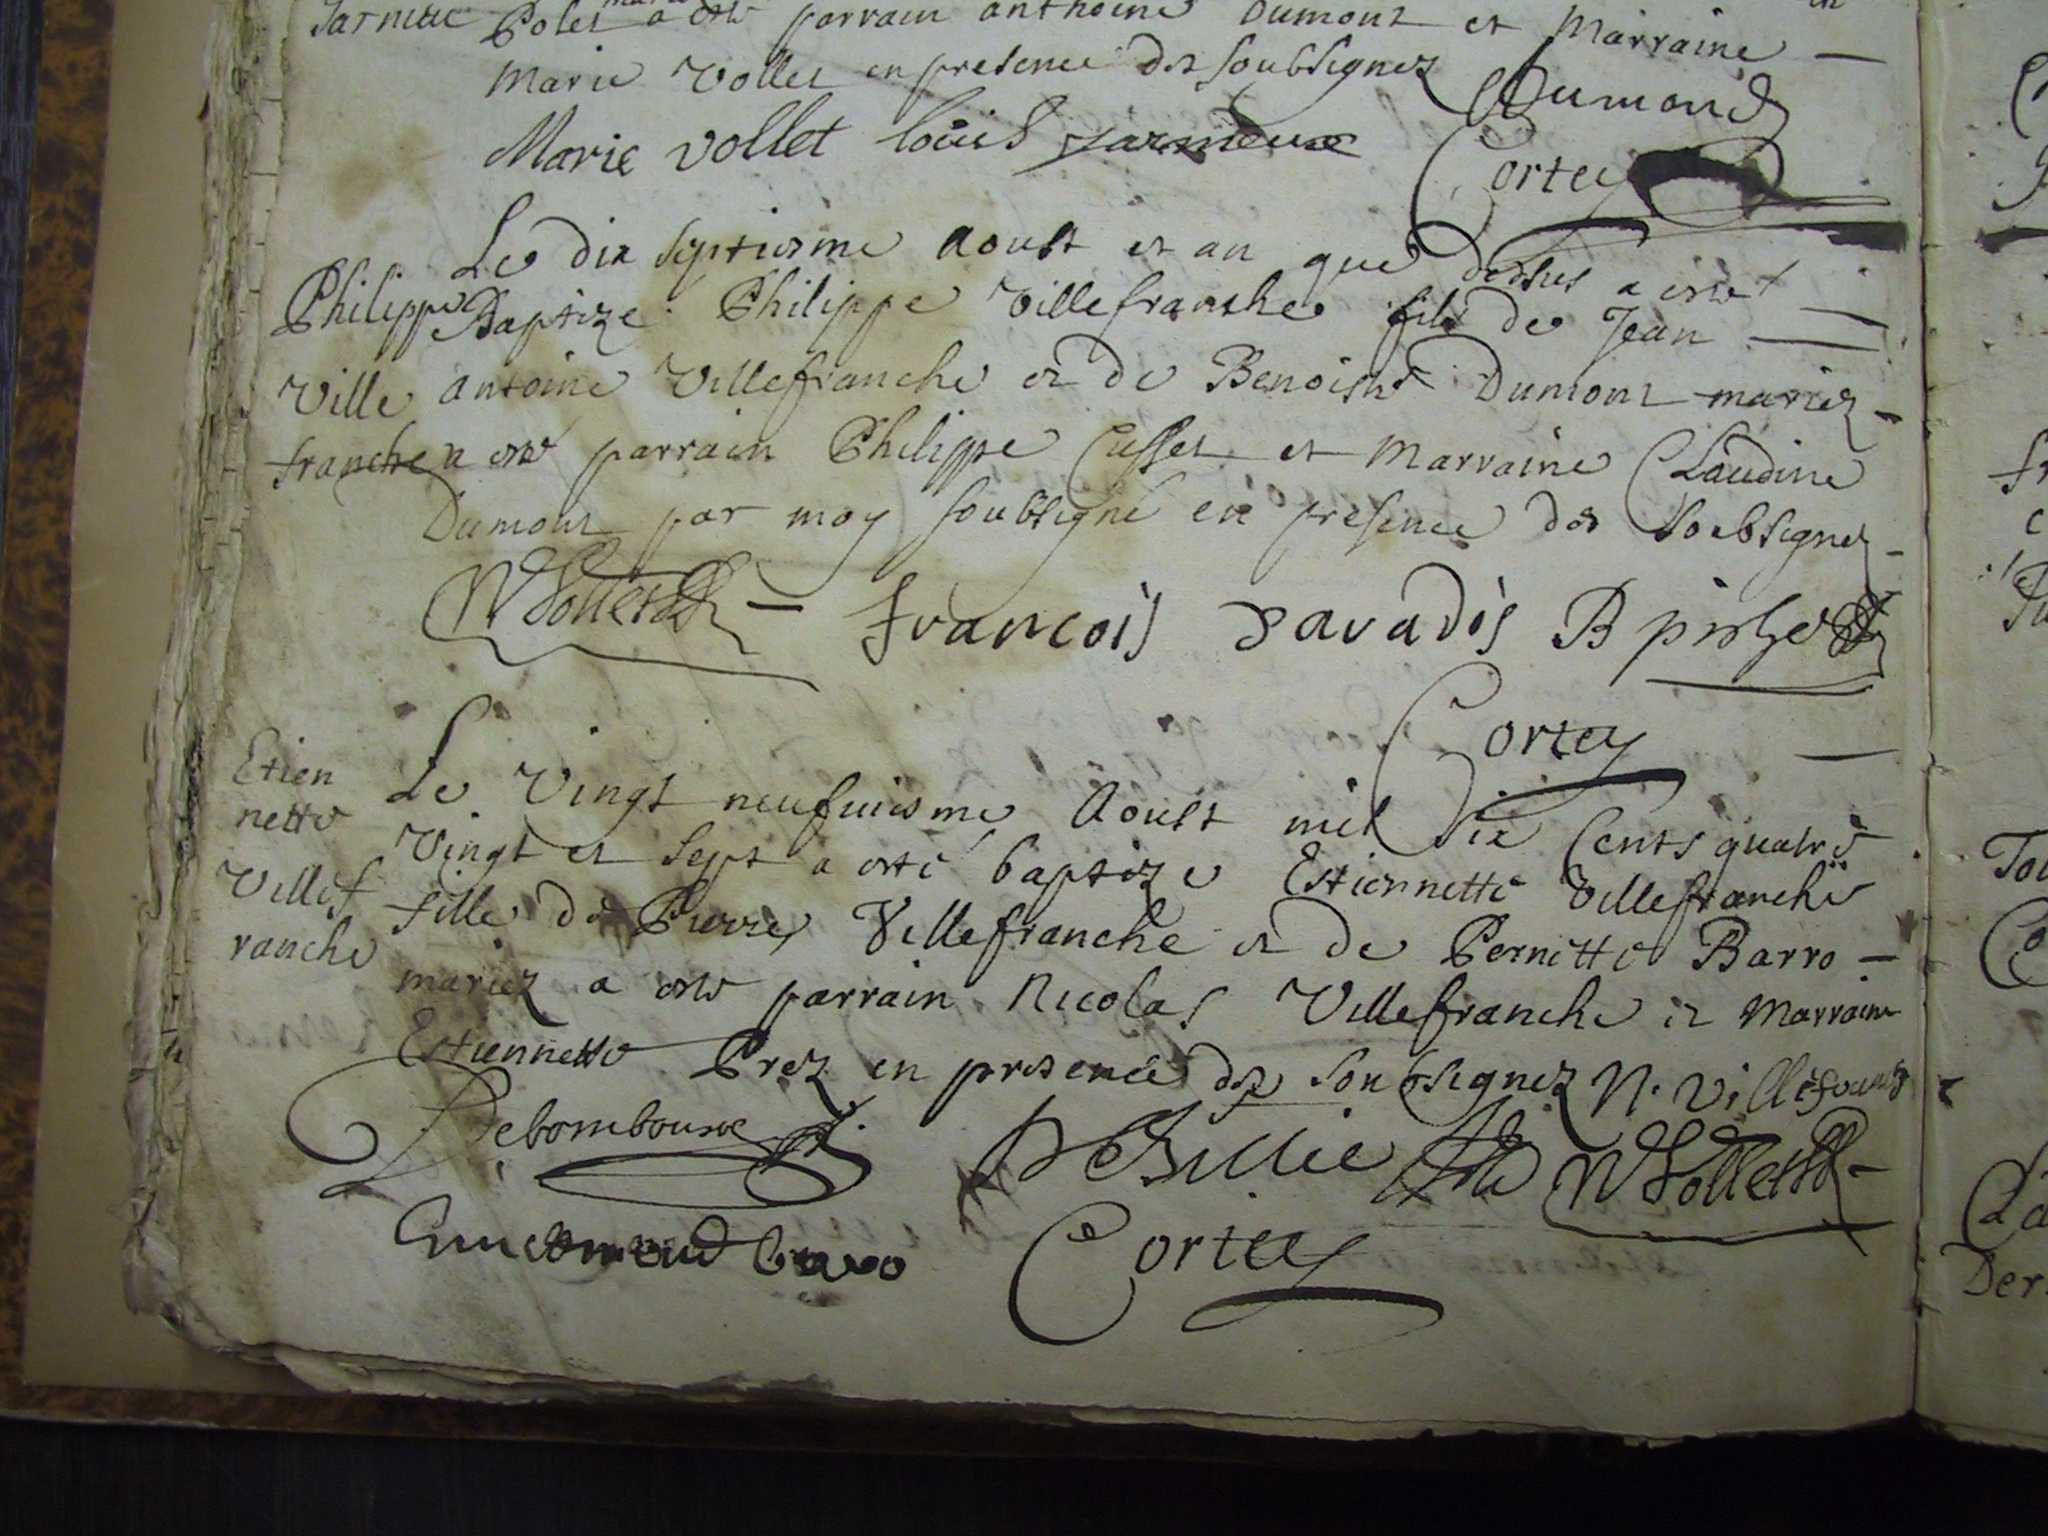 Polet a esté parrain anthoine Dumont et Marraine
Marie Vollet en presence des soubsignez
Dumond
Marie vollet louis
Cortey
Le dix septiesme Aoust et an que dessus a esté
Philippe Baptize Philippe Villefranche fils de Jean
Ville Antoine Villefranche et de Benoiste Dumont mariez
franche a esté parrain Philippe Cusset et Marraine Claudine
Dumont par moy soubsigné en presence des soubsignez
francois Paradis B
Cortey
Etien
nette
Villef
ranche
Le Vingt neufviesme Aoust mil six Cents quatre
Vingt et Sept a esté baptize Estiennette Villefranche
fille de Pierre Villefranche et de Pernette Barro
mariez a esté parrain Nicolas Villefranche et Marraine
Estiennette Prez en presence des soubsignez N. Villefranche
Debombourg
Cortey